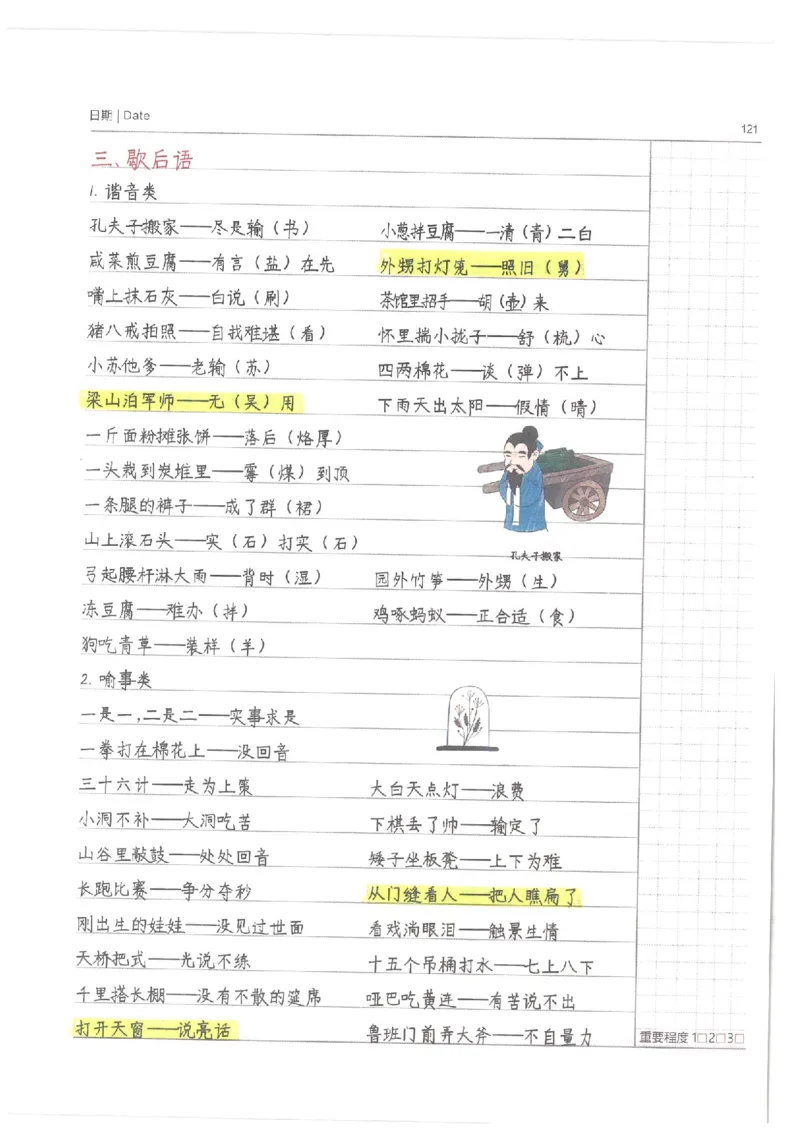 日期 | Date
121
三、歇后语
1. 谐音类
孔夫子搬家——尽是输（书）
小葱拌豆腐——一清（青）二白
咸菜煎豆腐——有言（盐）在先
外甥打灯笼——照旧（舅）
嘴上抹石灰——白说（刷）
茶馆里招手——胡（壶）来
猪八戒拍照——自我难堪（看）
怀里揣小拢子——舒（梳）心
小苏他爹——老输（苏）
四两棉花——谈（弹）不上
梁山泊军师——无（吴）用
下雨天出太阳——假情（晴）
一斤面粉摊张饼——落后（烙厚）
一头栽到炭堆里——霉（煤）到顶
一条腿的裤子——成了群（裙）
山上滚石头——实（石）打实（石）
孔夫子搬家
弓起腰杆淋大雨——背时（湿）
园外竹笋——外甥（生）
冻豆腐——难办（拌）
鸡啄蚂蚁——正合适（食）
狗吃青草——装样（羊）
2. 喻事类
一是一，二是二——实事求是
一拳打在棉花上——没回音
三十六计——走为上策
大白天点灯——浪费
小洞不补——大洞吃苦
下棋丢了帅——输定了
山谷里敲鼓——处处回音
矮子坐板凳——上下为难
长跑比赛——争分夺秒
从门缝看人——把人瞧扁了
刚出生的娃娃——没见过世面
看戏淌眼泪——触景生情
天桥把式——光说不练
十五个吊桶打水——七上八下
千里搭长棚——没有不散的筵席
哑巴吃黄连——有苦说不出
打开天窗——说亮话
鲁班门前弄大斧——不自量力
重要程度 1□2□3□